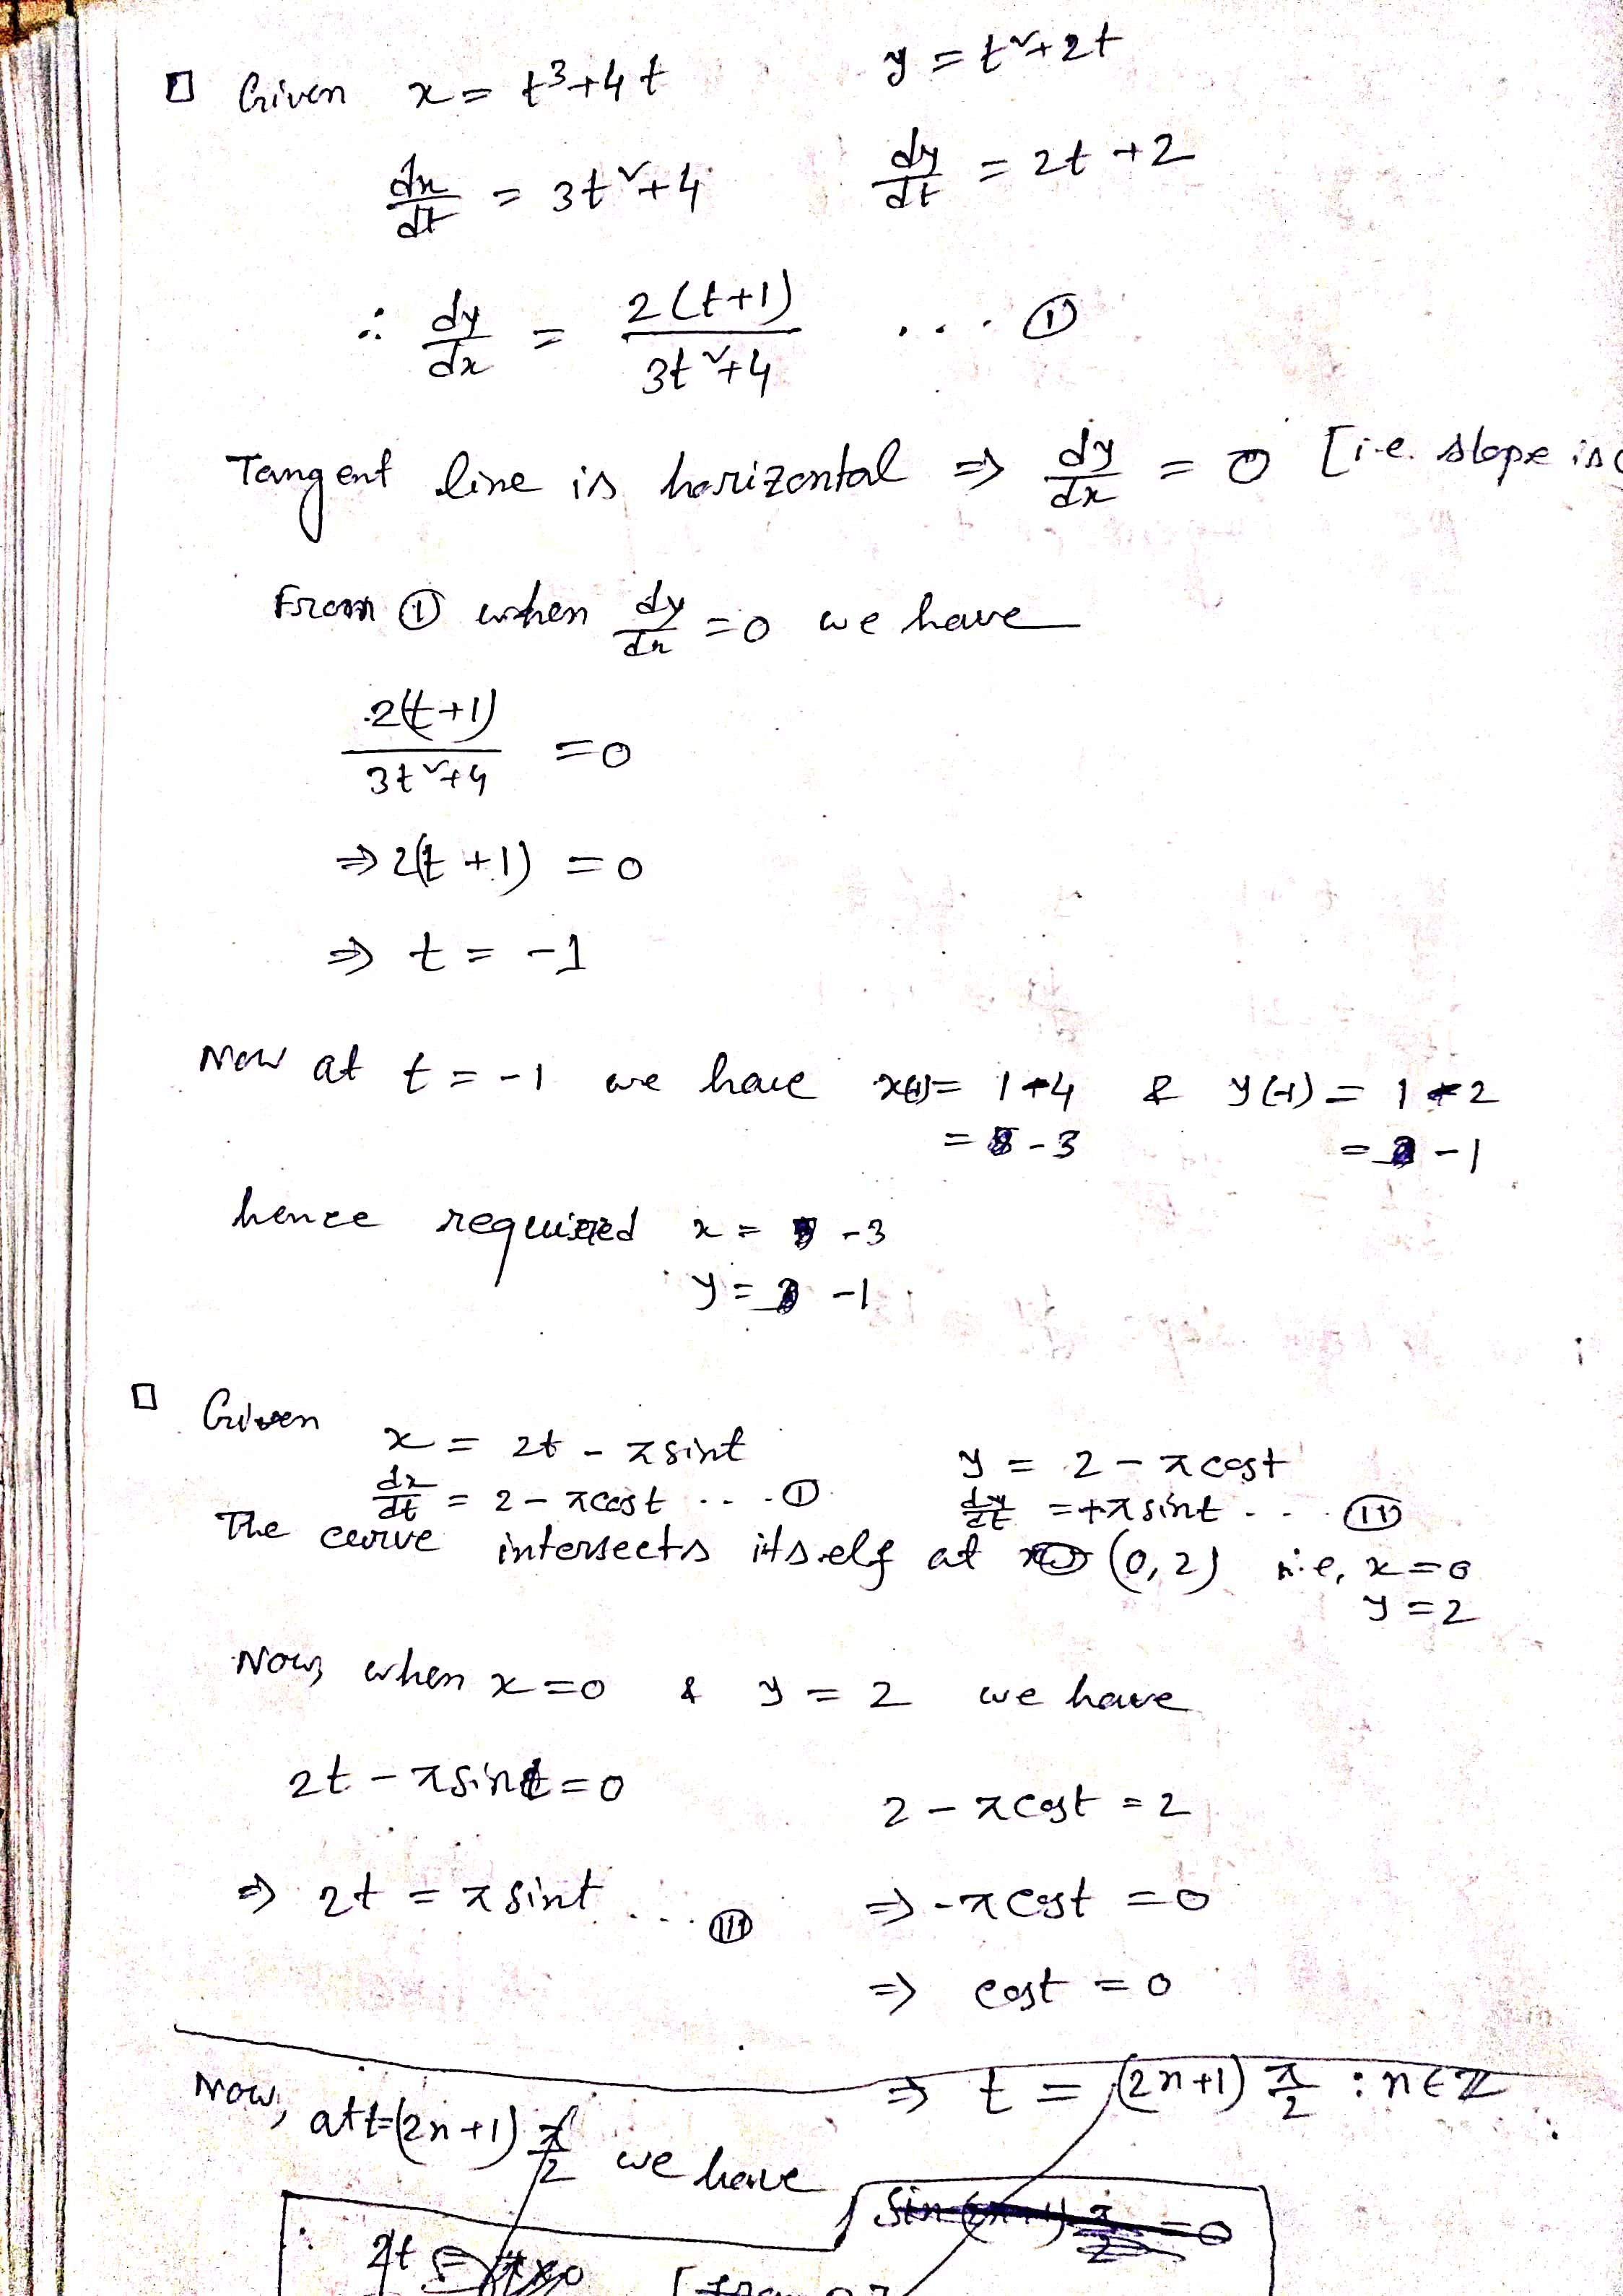 Given x = t³+4t y = t²+2t
dx/dt = 3t²+4 dy/dt = 2t+2
∴ dy/dx = 2(t+1)/3t²+4 ... (i)
Tangent line is horizontal ⇒ dy/dx = 0 [i.e. slope is
From (i) when dy/dx = 0 we have
2(t+1)/3t²+4 = 0
⇒ 2(t+1) = 0
⇒ t = -1
Now at t = -1 we have x(-1) = 1+4 & y(-1) = 1 2
= -3 = -1
hence required x = -3
y = -1
Given x = 2t - πsint y = 2 - πcost
dx/dt = 2 - πcost ... (i) dy/dt = +πsint ... (ii)
The curve intersects itself at (0,2) i.e, x=0
y=2
Now, when x=0 & y=2 we have
2t - πsint = 0 2 - πcost = 2
⇒ 2t = πsint ... (iii) ⇒ -πcost = 0
⇒ cost = 0
⇒ t = (2n+1) π/2 : n∈ℤ
Now, at t=(2n+1) π/2 we have
2t =